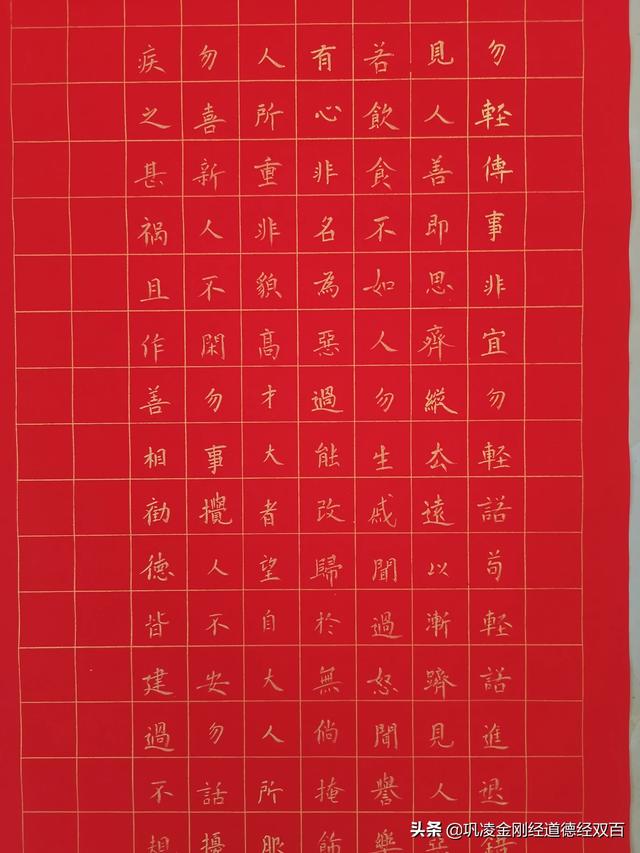 勿輕傳事非宜勿輕諾苟輕諾進退錯
見人善即思齊縱去遠以漸躋見人惡
若飲食不如人勿生戚聞過怒聞譽樂
有心非名為惡過能改歸於無倘掩飾
人所重非貌高才大者望自大人所服
勿喜新人不閑勿事攪人不安勿話擾
疾之甚禍且作善相勸德皆建過不規
头条 @巩凌金刚经道德经双百